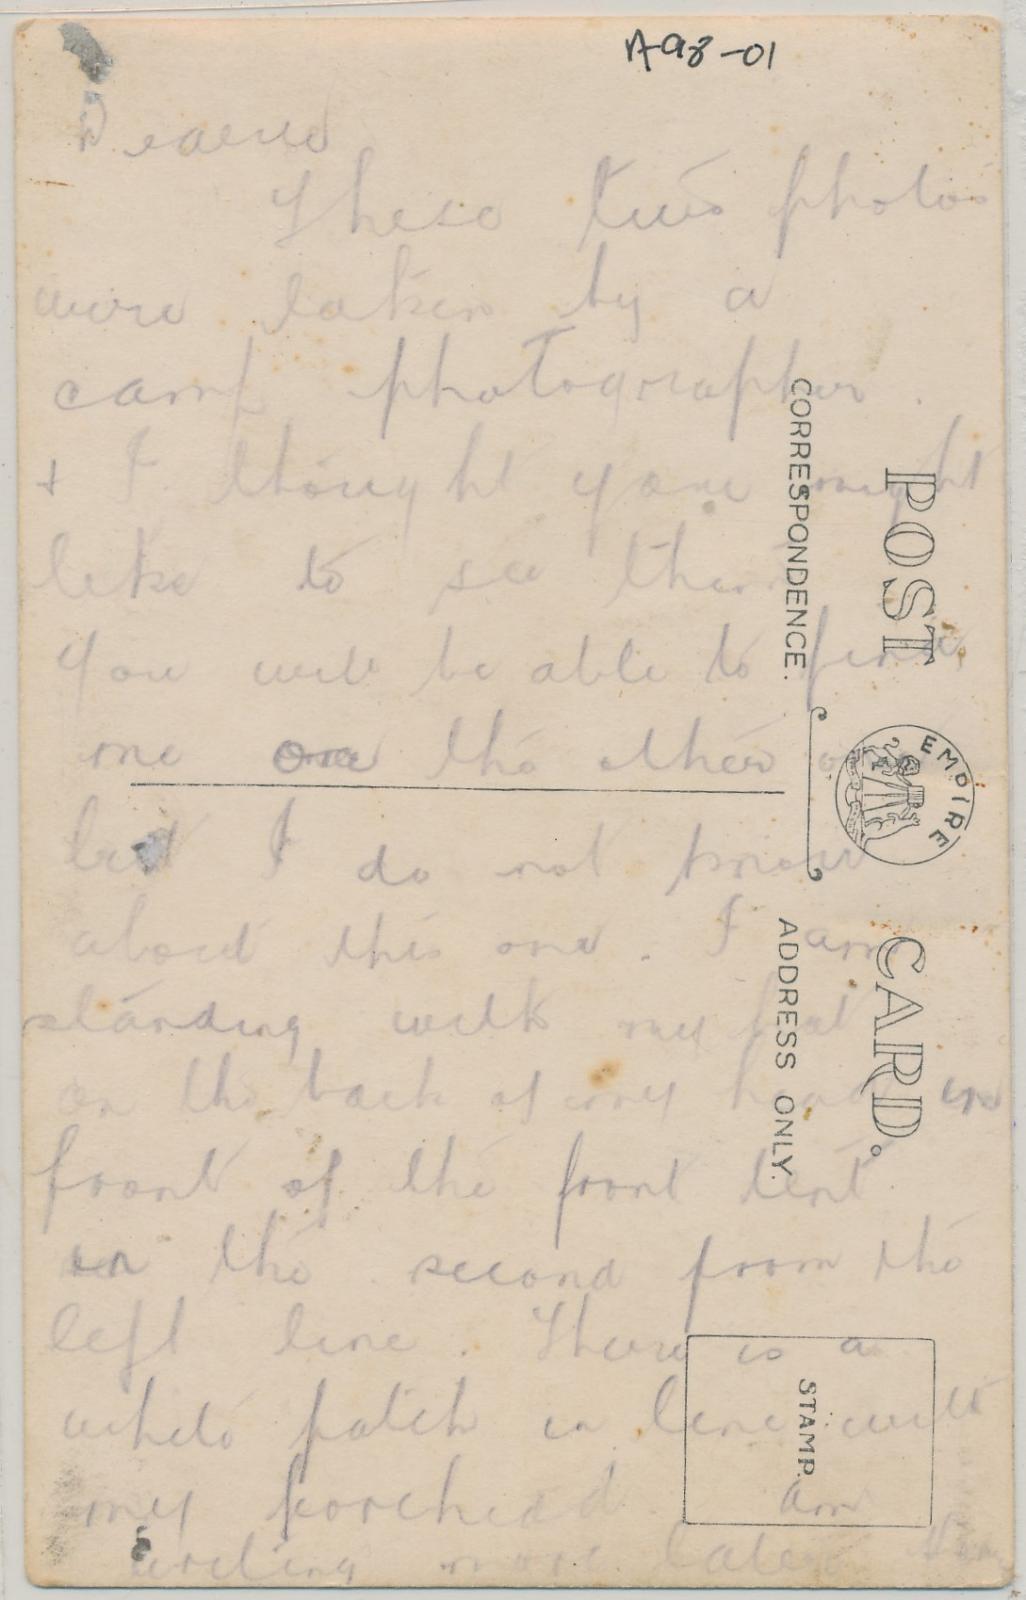 A98-01
These two photos
were taken by a
camp photographer.
+ I thought you might
like to see them
You will be able to find
me on the other
but I do not know
about this one. I am
standing with my hat
on the back of my head in
front of the front tent
in the second from the
left line. There is a
white patch in line with
my forehead. Am
writing more later
POST CARD.
CORRESPONDENCE.
EMPIRE
ADDRESS ONLY.
STAMP.